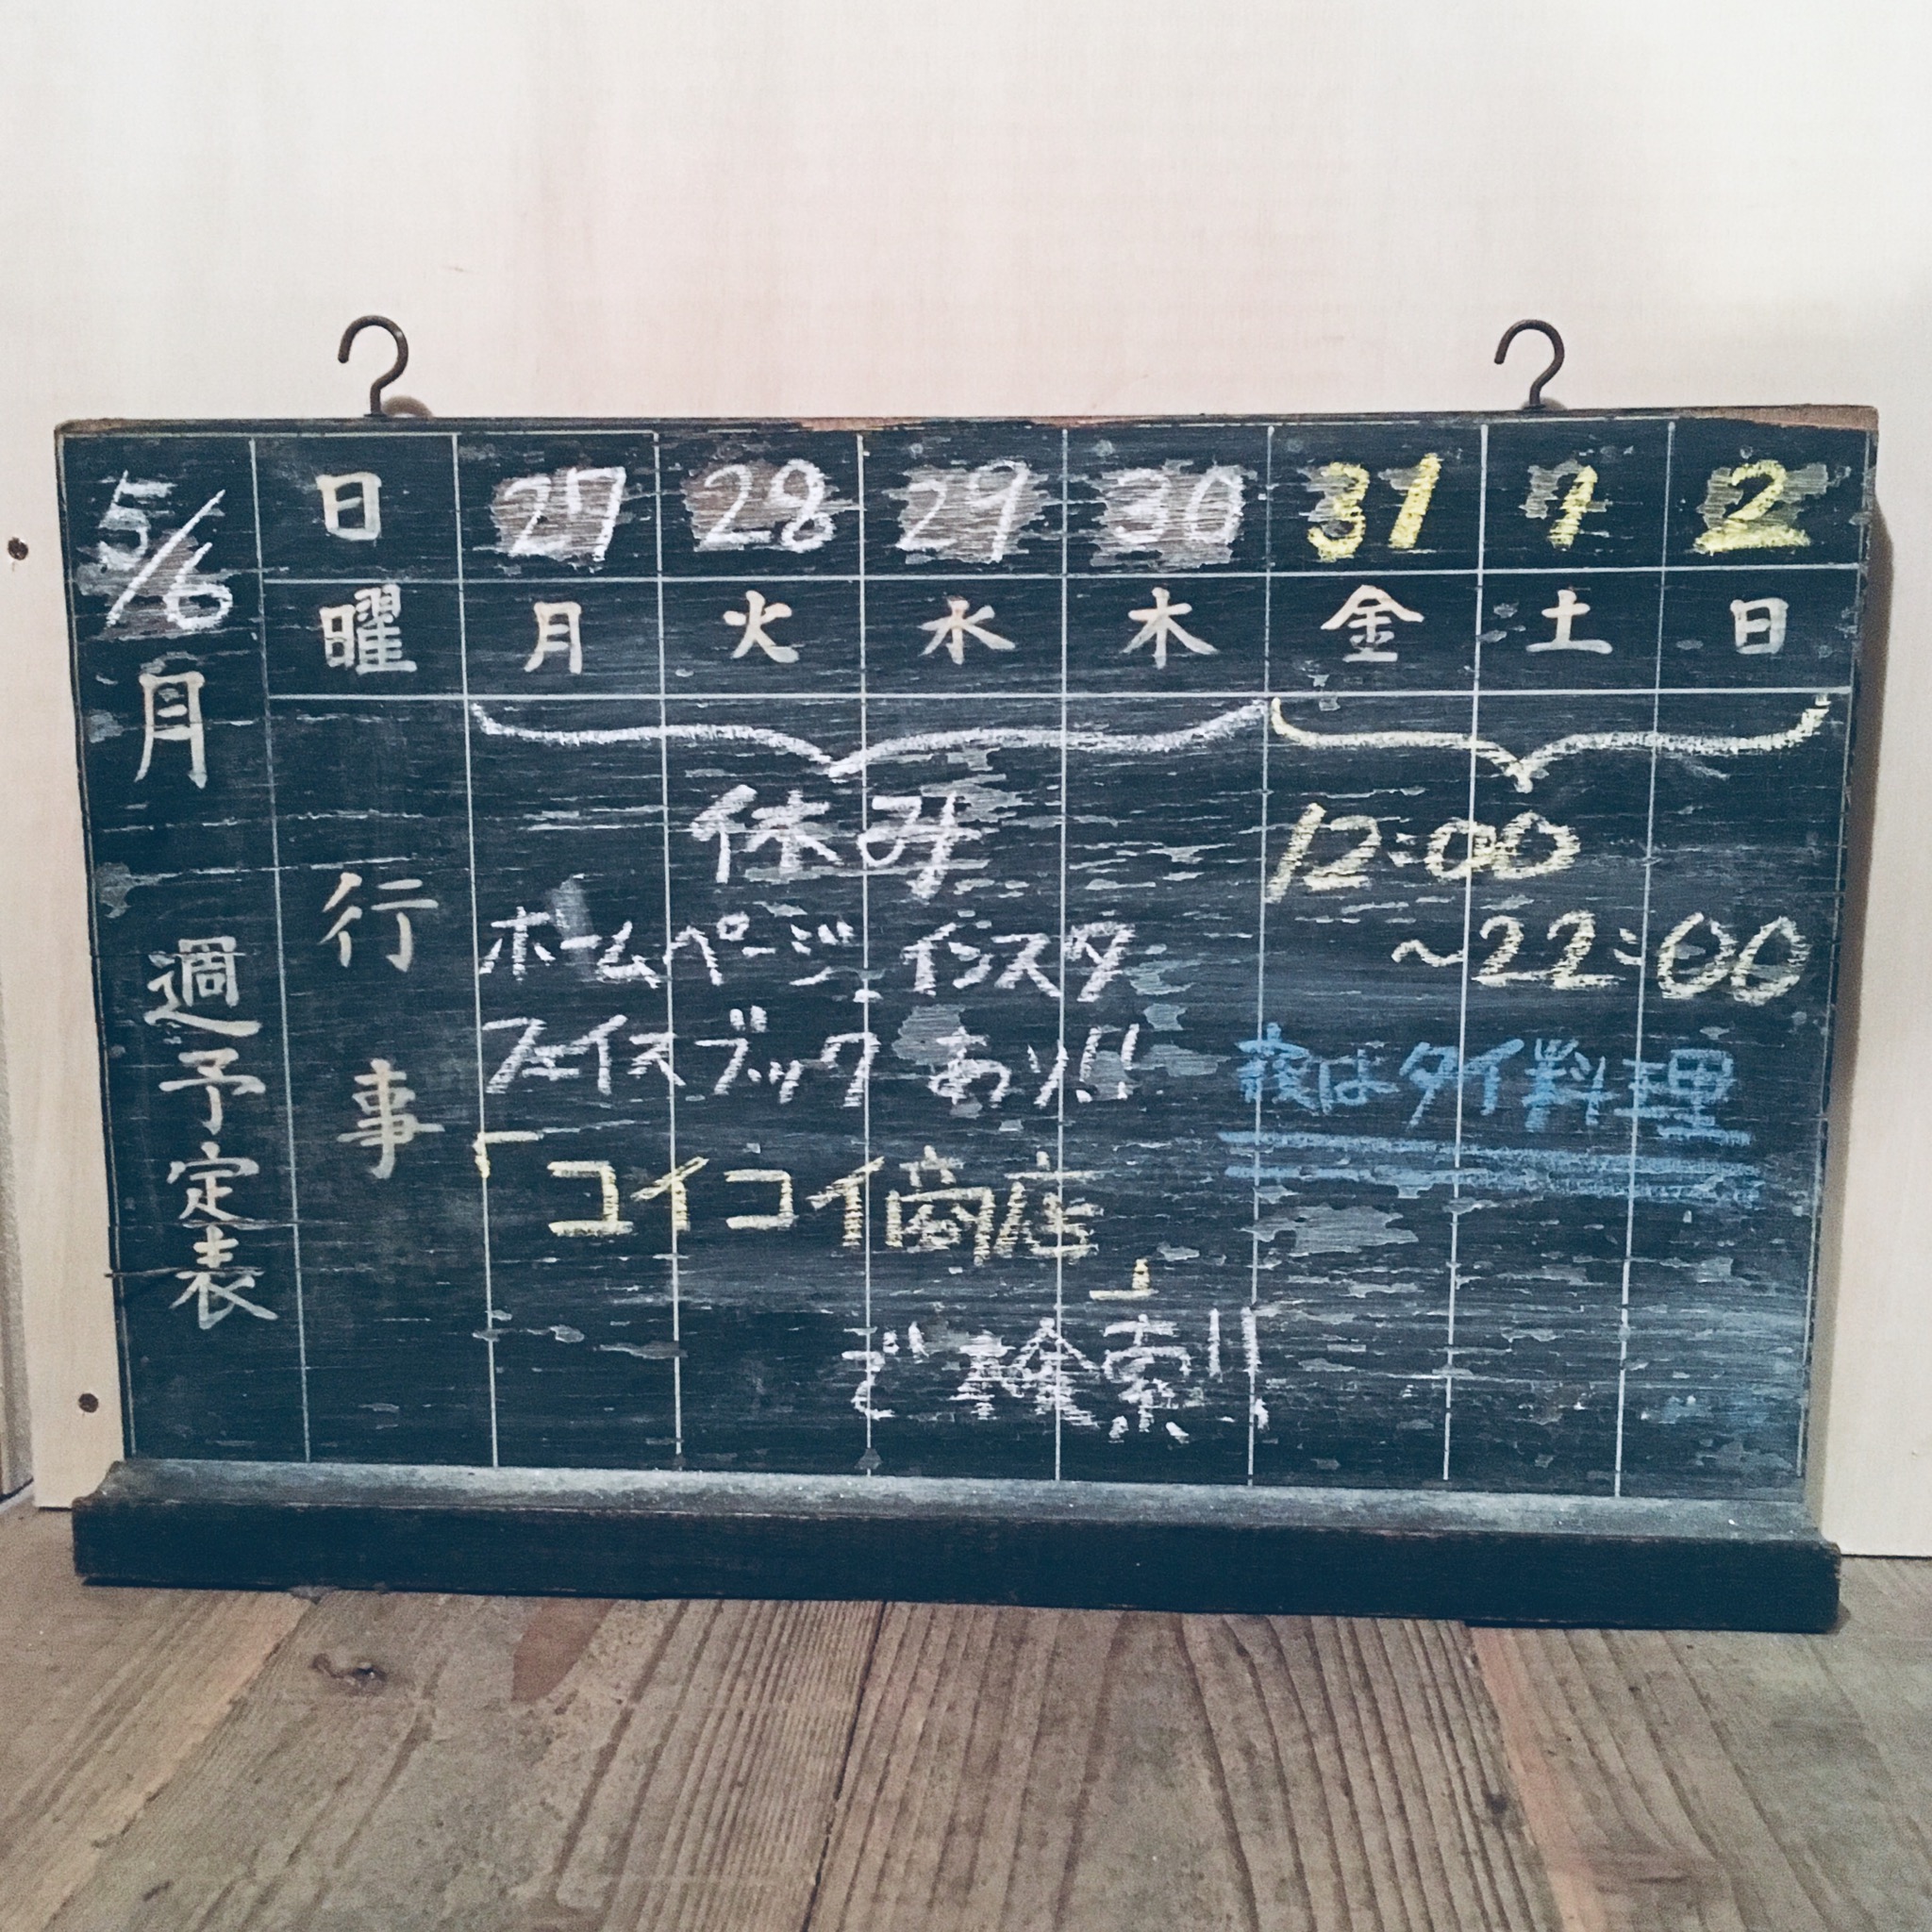 5/6月
週予定表
日 27 28 29 30 31 1 2
曜 月 火 水 木 金 土 日
行事
休み
ホームページ インスタ
フェイスブック あり!!
「コイコイ商店」
で検索!!
12:00
~22:00
夜はタイ料理